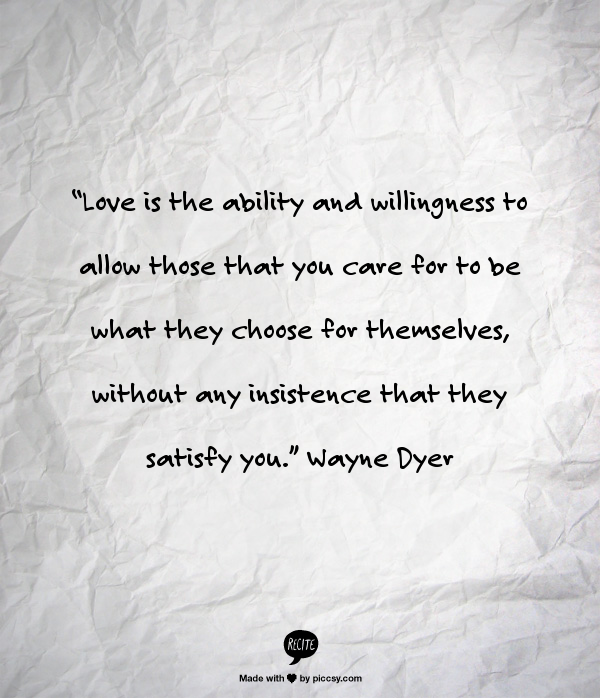 “Love is the ability and willingness to
allow those that you care for to be
what they choose for themselves,
without any insistence that they
satisfy you.” Wayne Dyer
RECITE
Made with ♥ by piccsy.com